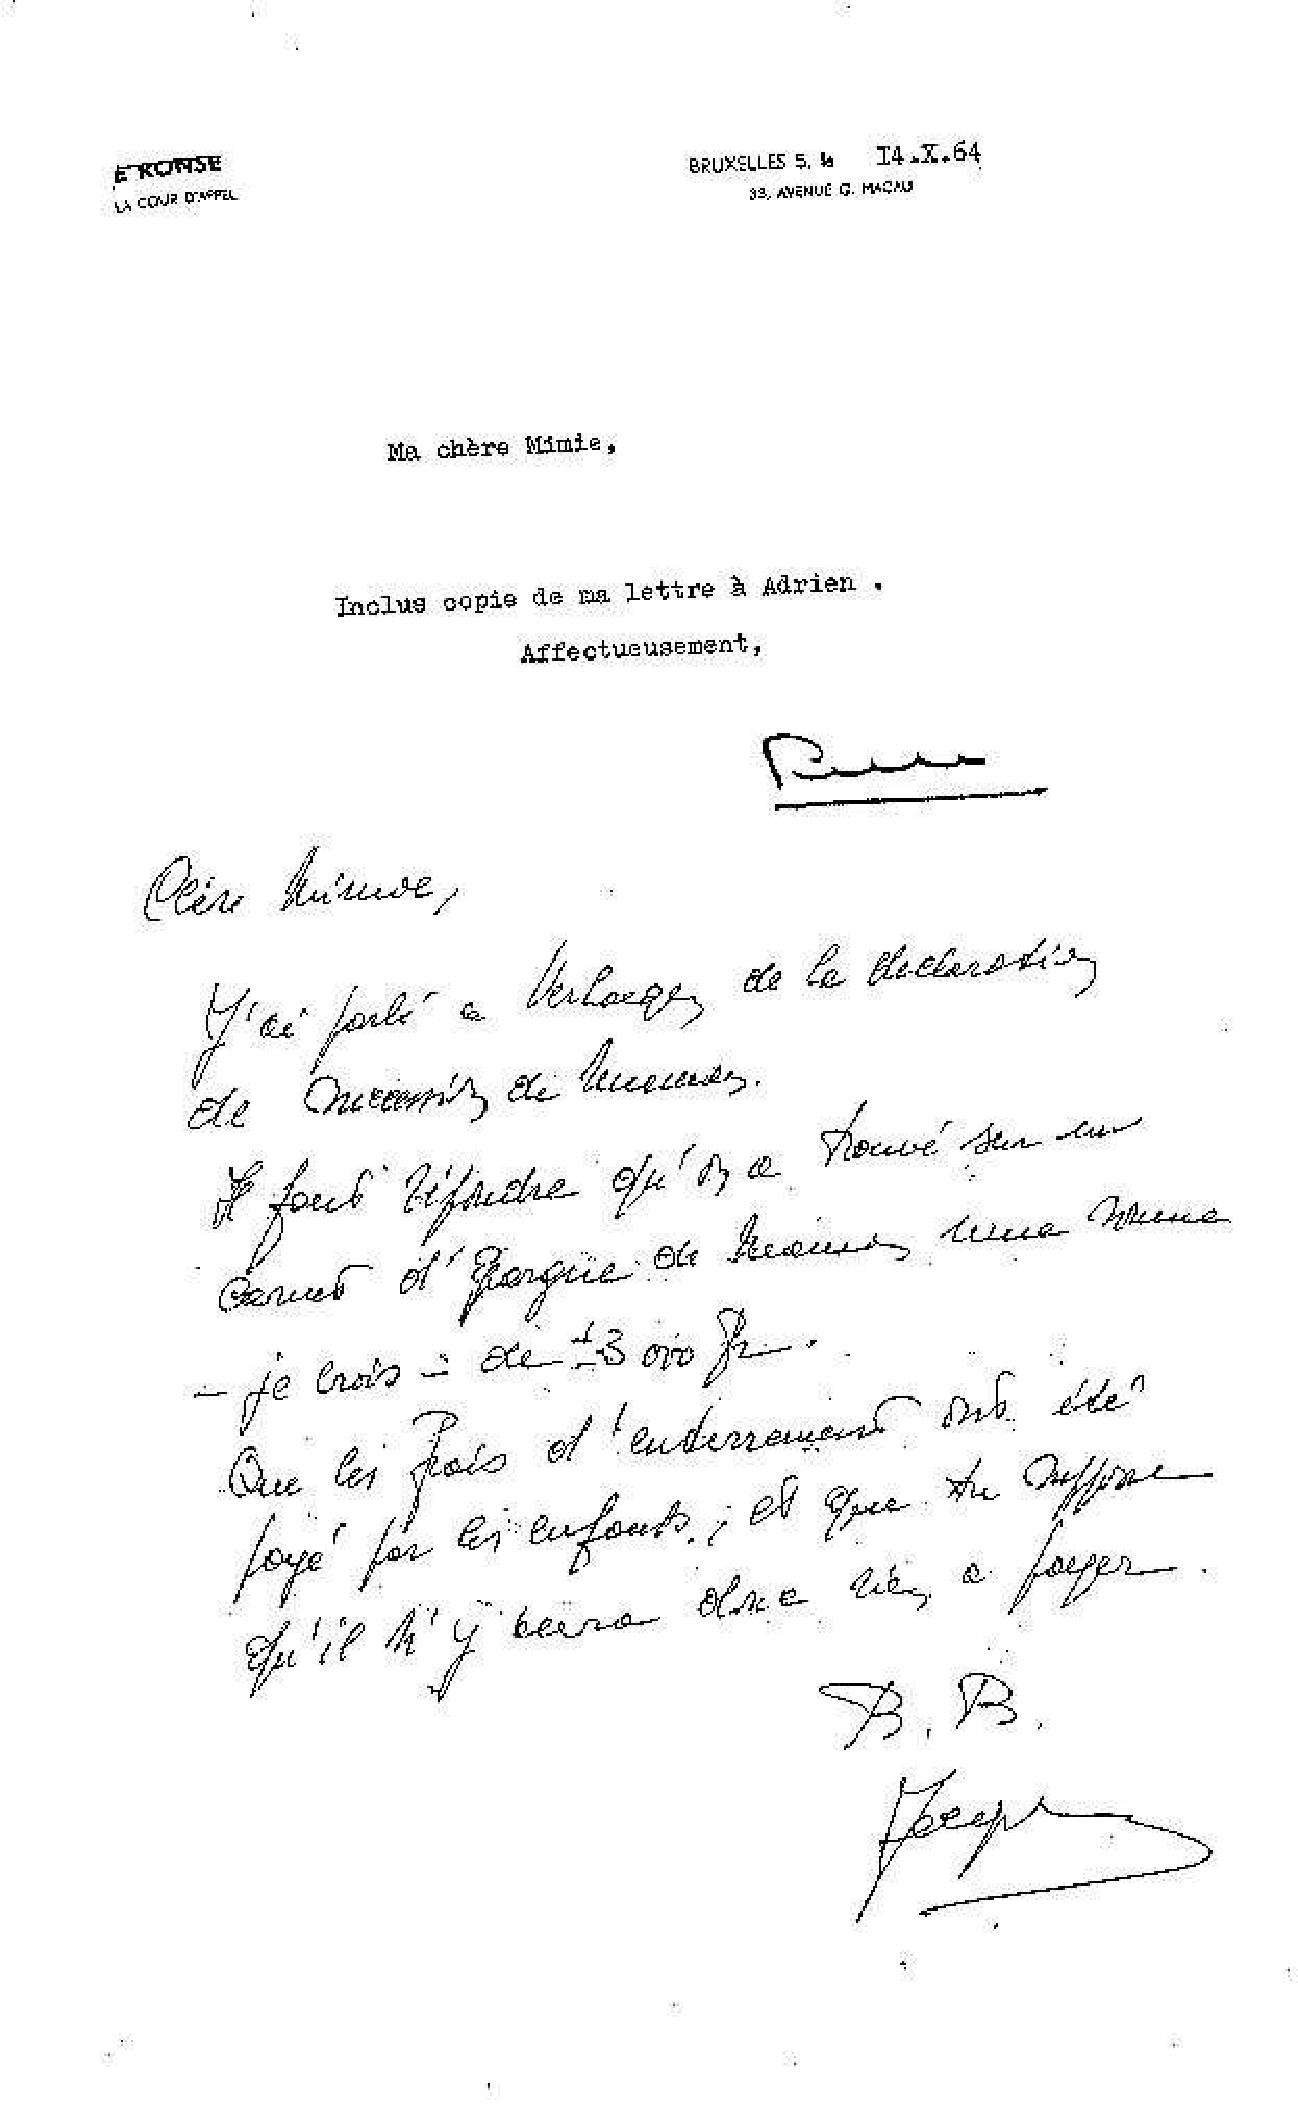 E RONSE
LA COUR D'APPEL
BRUXELLES 5, le 14.X.64
33, AVENUE G. MACAU
Ma chère Mimie,
Inclus copie de ma lettre à Adrien .
Affectueusement,
Chère Mimie,
J'ai parlé a Verhaegen de la declaration
de succession de Maman.
Il faut répondre qu'on a trouvé sur un
carnet d'Epargne de Maman une somme
- je crois - de ± 3 000 Fr.
Que les frais d'enterrement ont été
payé par les enfants ; et que tu suppose
qu'il n'y aura donc rien a payer.
B. B.
Joseph